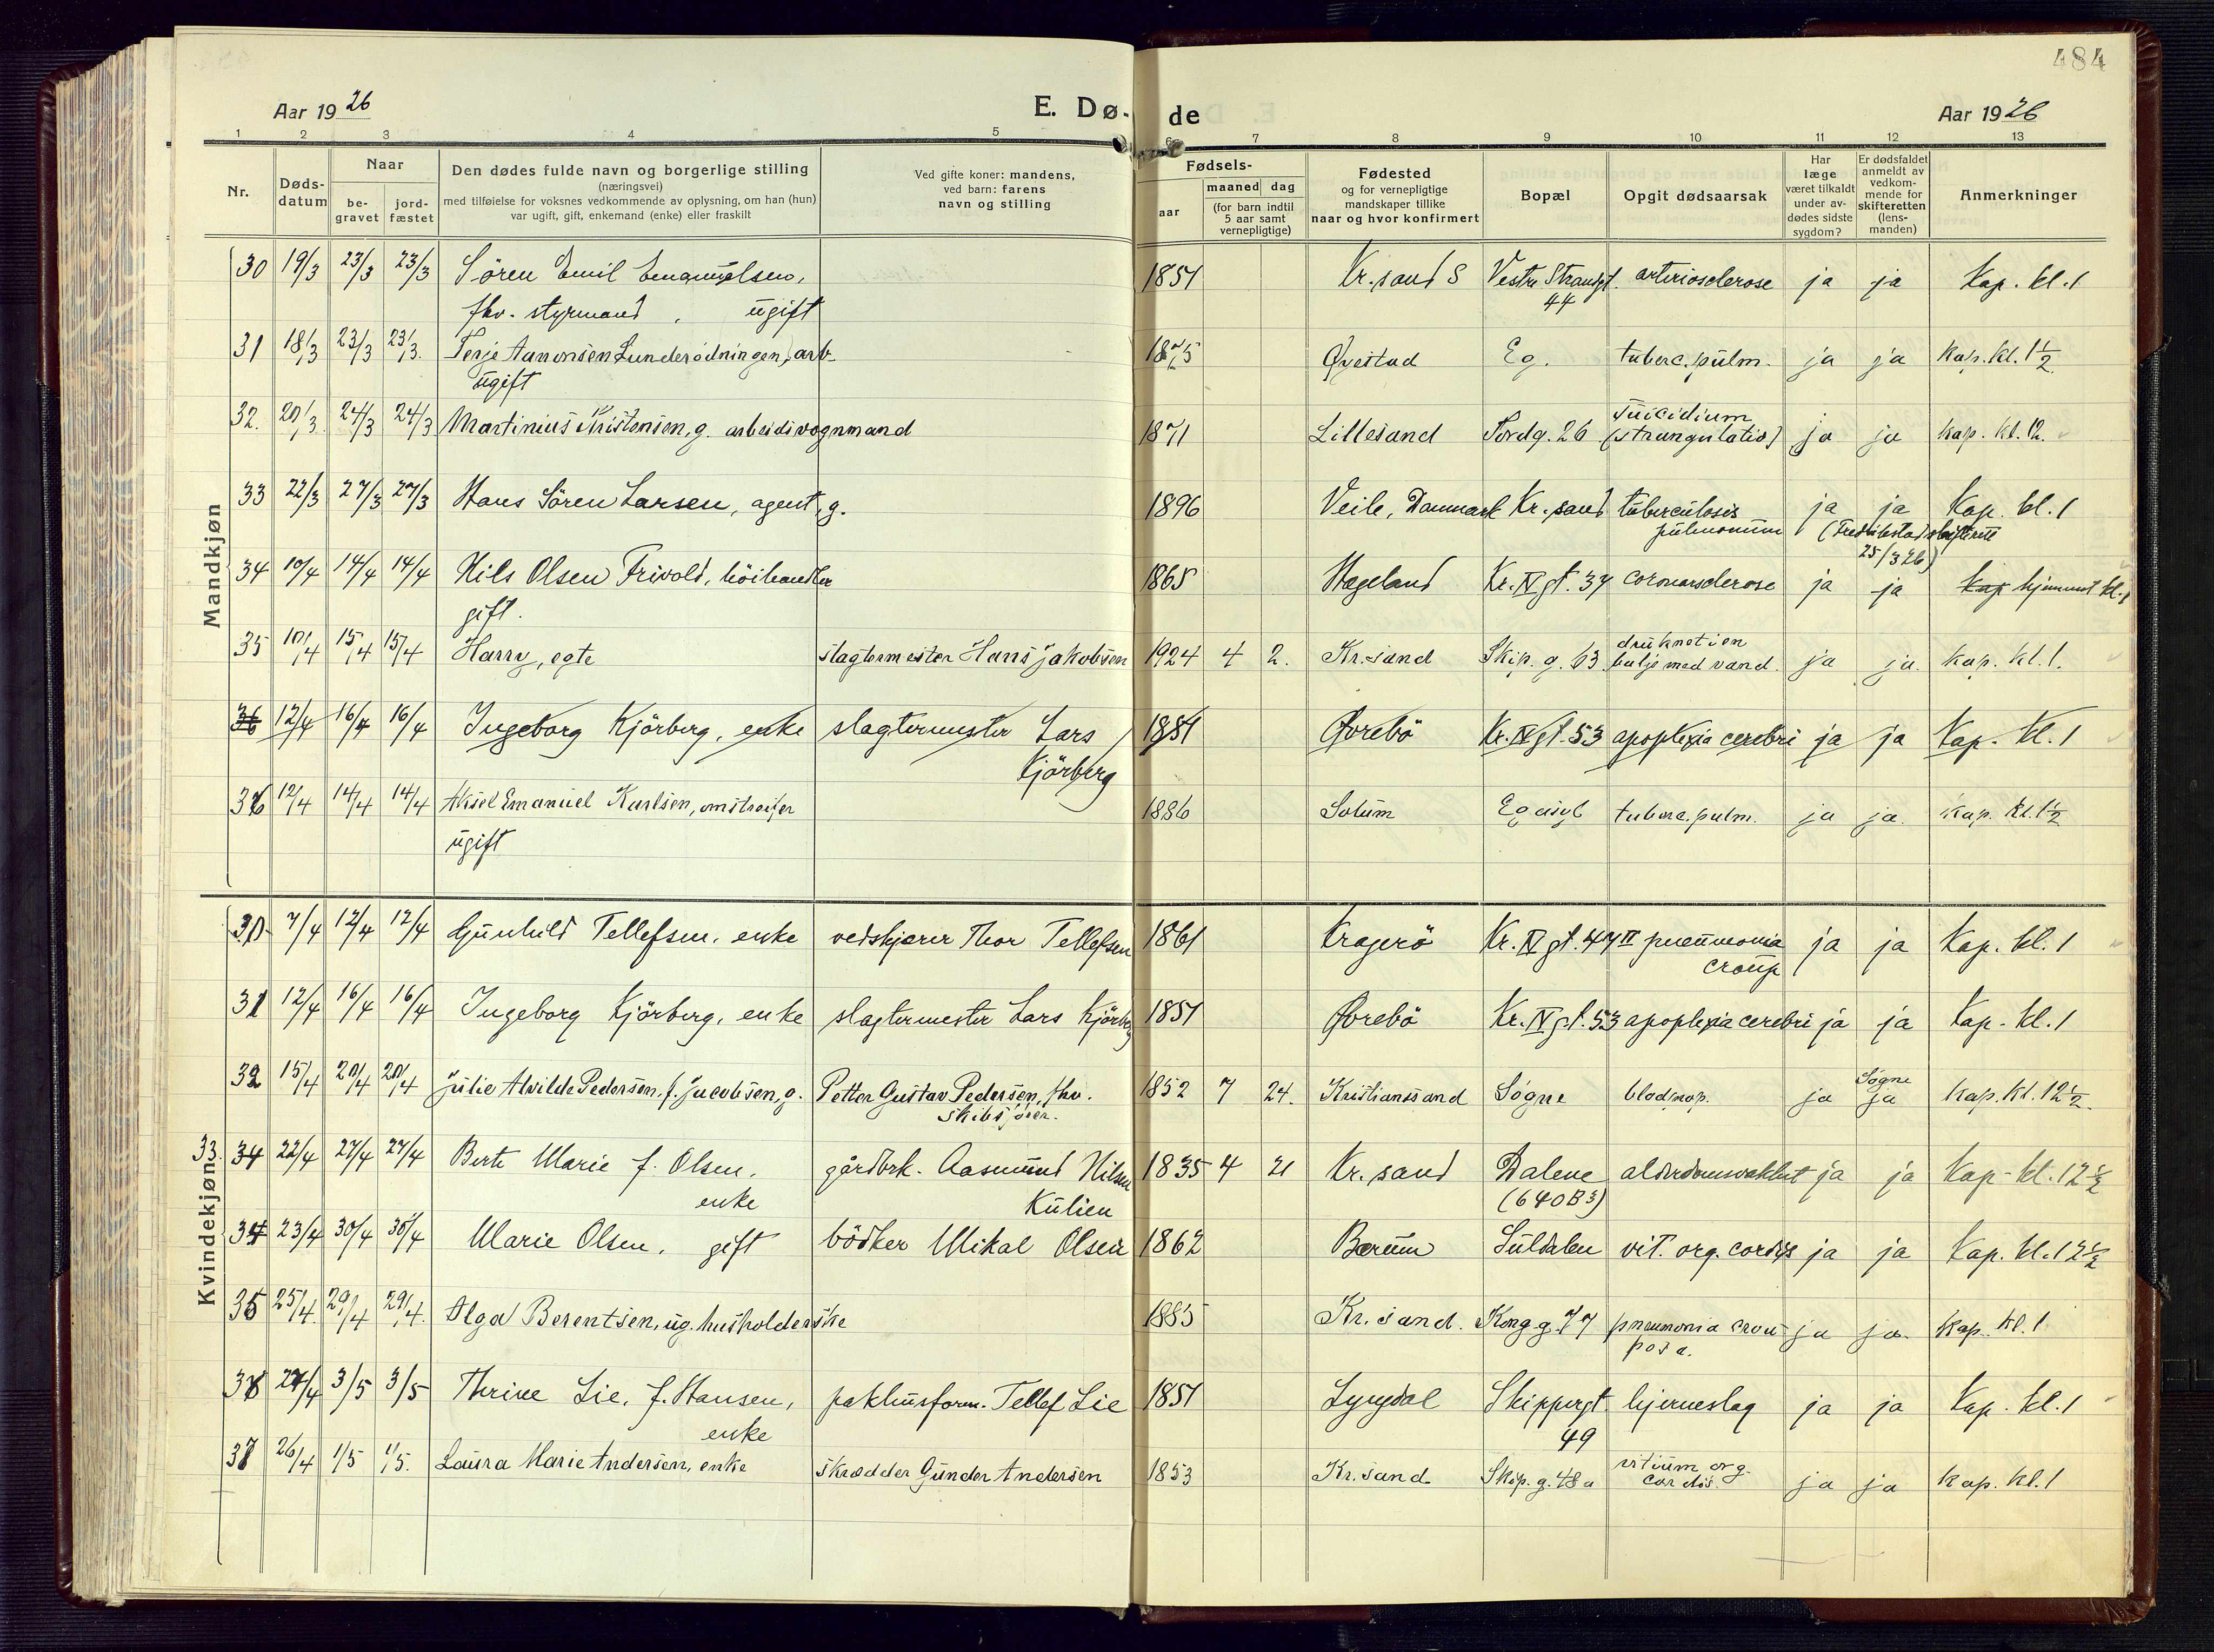 484
Aar 1926
E. Dø-
de
Aar 1926
1 2 3 4 5 6 7 8 9 10 11 12 13
Nr.
Døds-
datum
Naar
be-
gravet
jord-
fæstet
Den dødes fulde navn og borgerlige stilling
(næringsvei)
med tilføielse for voksnes vedkommende av oplysning, om han (hun)
var ugift, gift, enkemand (enke) eller fraskilt
Ved gifte koner: mandens,
ved barn: farens
navn og stilling
Fødsels-
aar
maaned dag
(for barn indtil
5 aar samt
vernepligtige)
Fødested
og for vernepligtige
mandskaper tillike
naar og hvor konfirmert
Bopæl
Opgit dødsaarsak
Har
læge
været tilkaldt
under av-
dødes sidste
sygdom?
Er dødsfaldet
anmeldt av
vedkom-
mende for
skifteretten
(lens-
manden)
Anmerkninger
Mandkjøn
30 19/3 23/3 23/3 Sören Emil Emanuelsen, 1851 Kr.sand S Vestre Strandgt. arteriosclerose ja ja Kap. kl. 1
fhv. styrmand, ugift 44
31 18/3 23/3 23/3. Terje Aanonsen Lunderödningen, arb. 1875 Øyestad Eg. tuberc. pulm. ja ja Kap. kl. 1½
ugift
32. 20/3 24/3 24/3 Martinius Kristensen, g. arbeidsvognmand 1871 Lillesand Tordg. 26 suicidium ja ja kap. kl. 12.
(strangulatio)
33 22/3 27/3 27/3 Hans Sören Larsen, agent, g. 1896 Veile, Danmark Kr.sand tuberculosis ja ja Kap. kl. 1
pulmonum (Fredrikstad skifterett
25/3 26)
34 10/4 14/4 14/4 Nils Olsen Frivold, höihandler 1865 Hægeland Kr. IV gt. 37 coronarsclerose ja ja kap hjemmet kl. 1
gift.
35 10/4 15/4 15/4 Harry, egte slagtermester Hans Jakobsen 1924 4 2. Kr.sand Skip. g. 63 druknet i en ja ja. Kap. kl. 1.
balje med vand.
36 12/4 16/4 16/4 Ingeborg Kjörberg, enke slagtermester Lars 1851 Øvrebö Kr. IV gt. 53 apoplexia cerebri ja ja Kap. kl. 1
Kjörberg
36 12/4 14/4 14/4 Aksel Emanuel Karlsen, omstreifer 1886 Solum Eg asyl tuberc. pulm. ja ja. kap. kl. 1½
ugift
Kvindekjøn
30 7/4 12/4 12/4 Gunhild Tellefsen, enke vedskjærer Thor Tellefsen 1861 Kragerö Kr. IV gt. 47 II pneumonia ja ja Kap. kl. 1
croup
31 12/4 16/4 16/4 Ingeborg Kjörberg, enke slagtermester Lars Kjörberg 1851 Øvrebö Kr. IV gt. 53 apoplexia cerebri ja ja Kap. kl. 1
32 15/4 20/4 20/4 Julie Alvilde Pedersen, f. Jacobsen, g. Petter Gustav Pedersen, fhv. 1852 7 24. Kristianssand Søgne blodprop. ja Søgne ja kap. kl. 12½.
33. 34 22/4 27/4 27/4 Berte Marie f. Olsen, gårdbrk. Aasmund Nilsen 1835 4 21 Kr.sand Dalene alderdomssvakhet ja ja Kap. kl. 12½
enke Kulien (640 B 3)
34 23/4 30/4 30/4 Marie Olsen, gift bödker Mikal Olsen 1862 Bærum Suldalen vit. org. cordis ja ja Kap. kl. 12½
35 25/4. 29/4 29/4. Olga Berentsen, ug. husholderske 1885 Kr.sand. Kong. g. 77 pneumonia crou- ja ja. kap. kl. 1
posa.
36 27/4 3/5 3/5 Thrine Lie, f. Hansen, pakhusform. Tellef Lie 1851 Lyngdal Skippergt. hjerneslag ja ja Kap. kl. 1
enke 49
37 26/4 1/5 1/5. Laura Marie Andersen, enke skrædder Gunder Andersen 1853 Kr.sand Skip. g. 48a vitium org. ja ja kap. kl. 1
cordis.